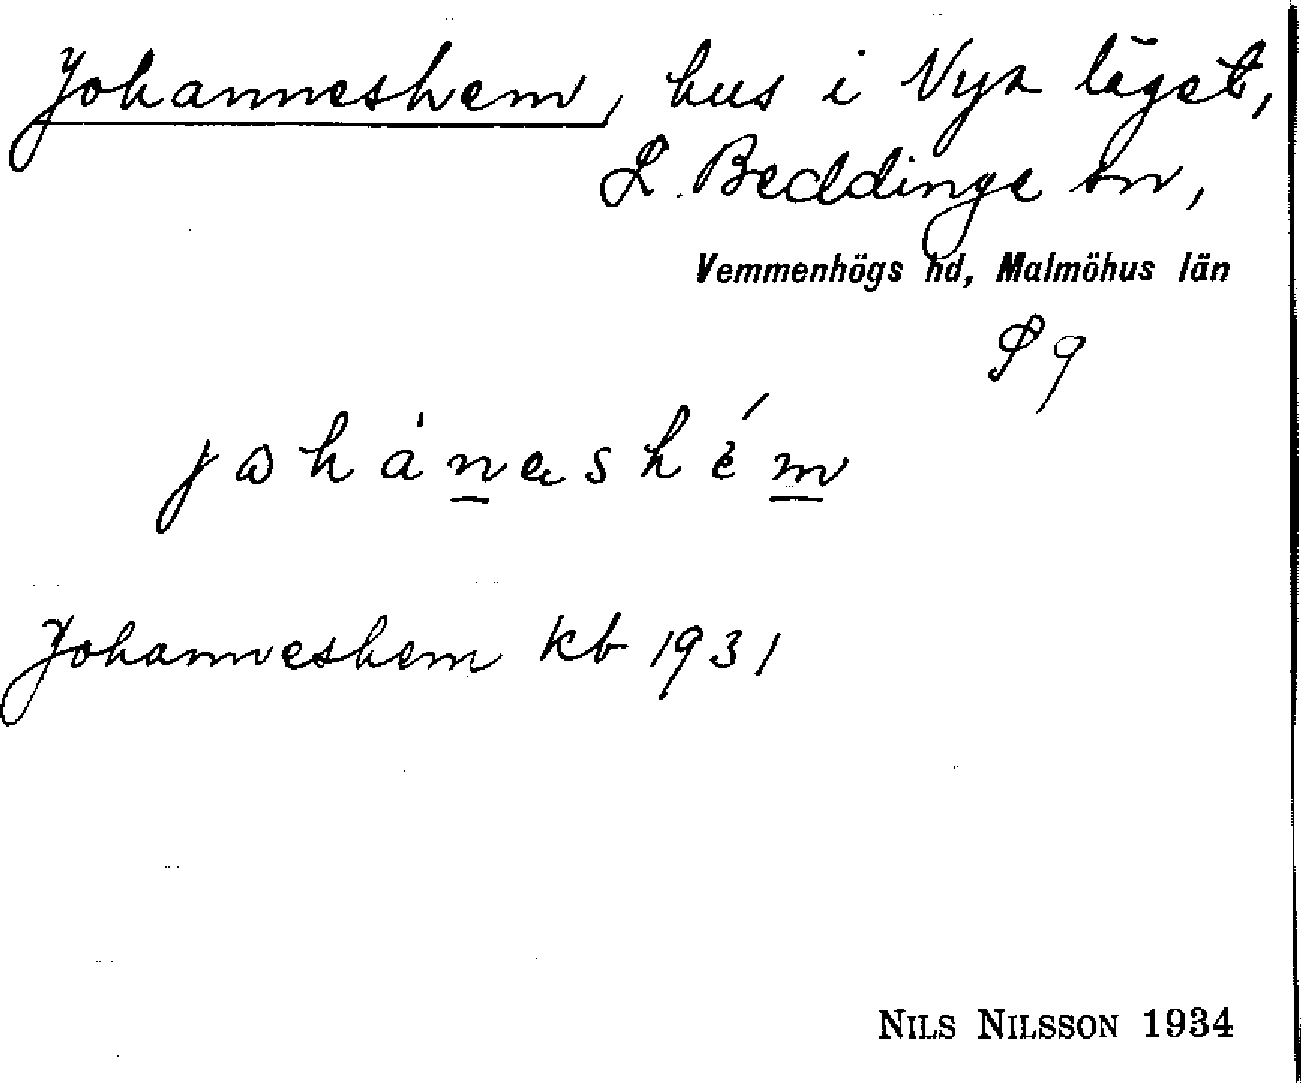 Johanneshem, hus i Nya läget,
L. Beddinge sn,
Vemmenhögs hd, Malmöhus län
S 9
johánashém
Johanneshem kb 1931
NILS NILSSON 1934